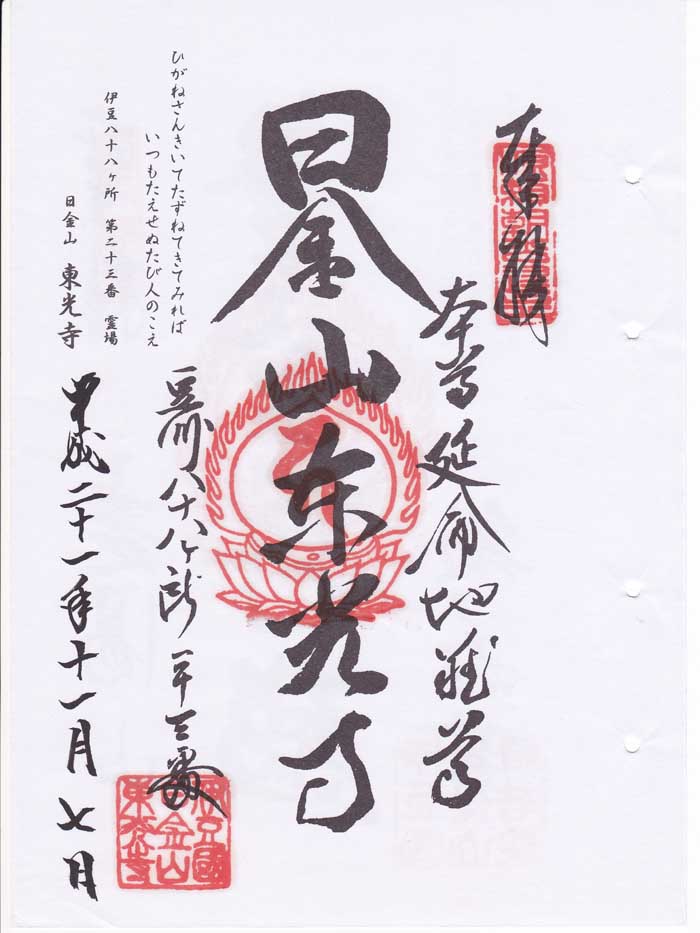 奉拝
本尊延命地蔵尊
日金山東光寺
ひがねさんきいてたずねてきてみれば
いつもたえせぬたび人のこえ
豆州八十八ヶ所二十三番
伊豆八十八ケ所 第二十三番 霊場
日金山 東光寺
平成二十一年十一月七日
伊豆國
日金山
東光寺